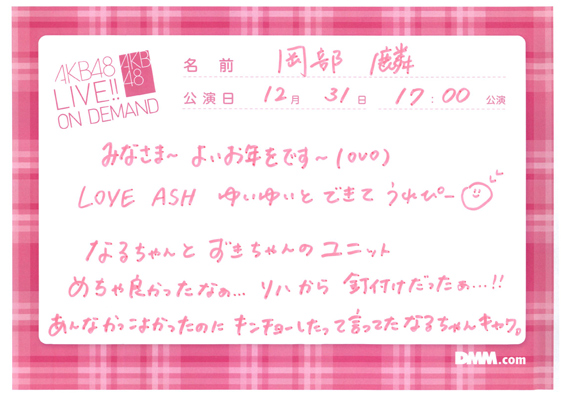 AKB48
LIVE!!
ON DEMAND
AKB
48
名前 岡部 麟
公演日 12月 31日 17:00 公演
みなさま〜 よいお年をです〜(OVO)
LOVE ASH ゆいゆいと できて うれぴー
なるちゃんと ずきちゃんの ユニット
めちゃ良かったなぁ... リハから 釘付けだったぁ...!!
あんなかっこよかったのに キンチョーしたって言ってた なるちゃんキャワ。
DMM.com